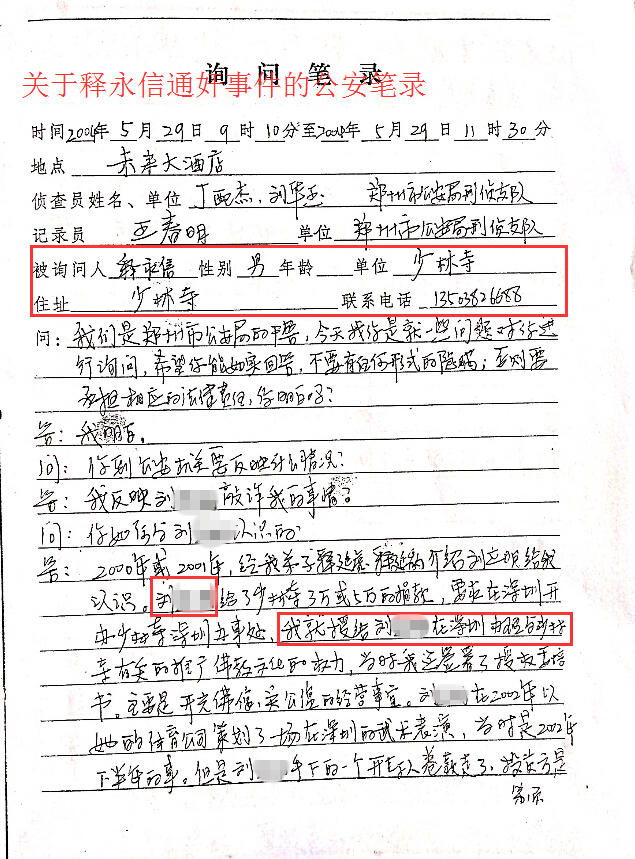 询问笔录
关于释永信通奸事件的公安笔录
时间2004年5月29日9时10分至2004年5月29日11时30分
地点 未来大酒店
侦查员姓名、单位 丁配杰、刘华玉 郑州市公安局刑侦支队
记录员 王春明 单位 郑州市公安局刑侦支队
被询问人 释永信 性别 男 年龄 单位 少林寺
住址 少林寺 联系电话 13503826688
问：我们是郑州市公安局的干警，今天找你是就一些问题对你进
行询问，希望你能如实回答，不要有任何形式的隐瞒；否则要
承担相应的法律责任，你明白吗？
答：我明白。
问：你到公安机关要反映什么情况？
答：我反映刘 敲诈我的事情？
问：你如何与刘 认识的
答：2000年或2001年，经我弟子释延 介绍刘 给我
认识。刘 给了少林寺3万或5万的捐款，要求在深圳开
办少林寺深圳办事处，我就授给刘 在深圳办理与少林
寺有关的推广佛教文化的权力，当时我还签署了授权委托
书。主要是开光佛信、卖 的经营事宜。刘 在2002年以
她的体育公司策划了一场在深圳的武术表演，当时是2002年
下半年的事。但是刘 手下的一个 人卷款走了、投资方是